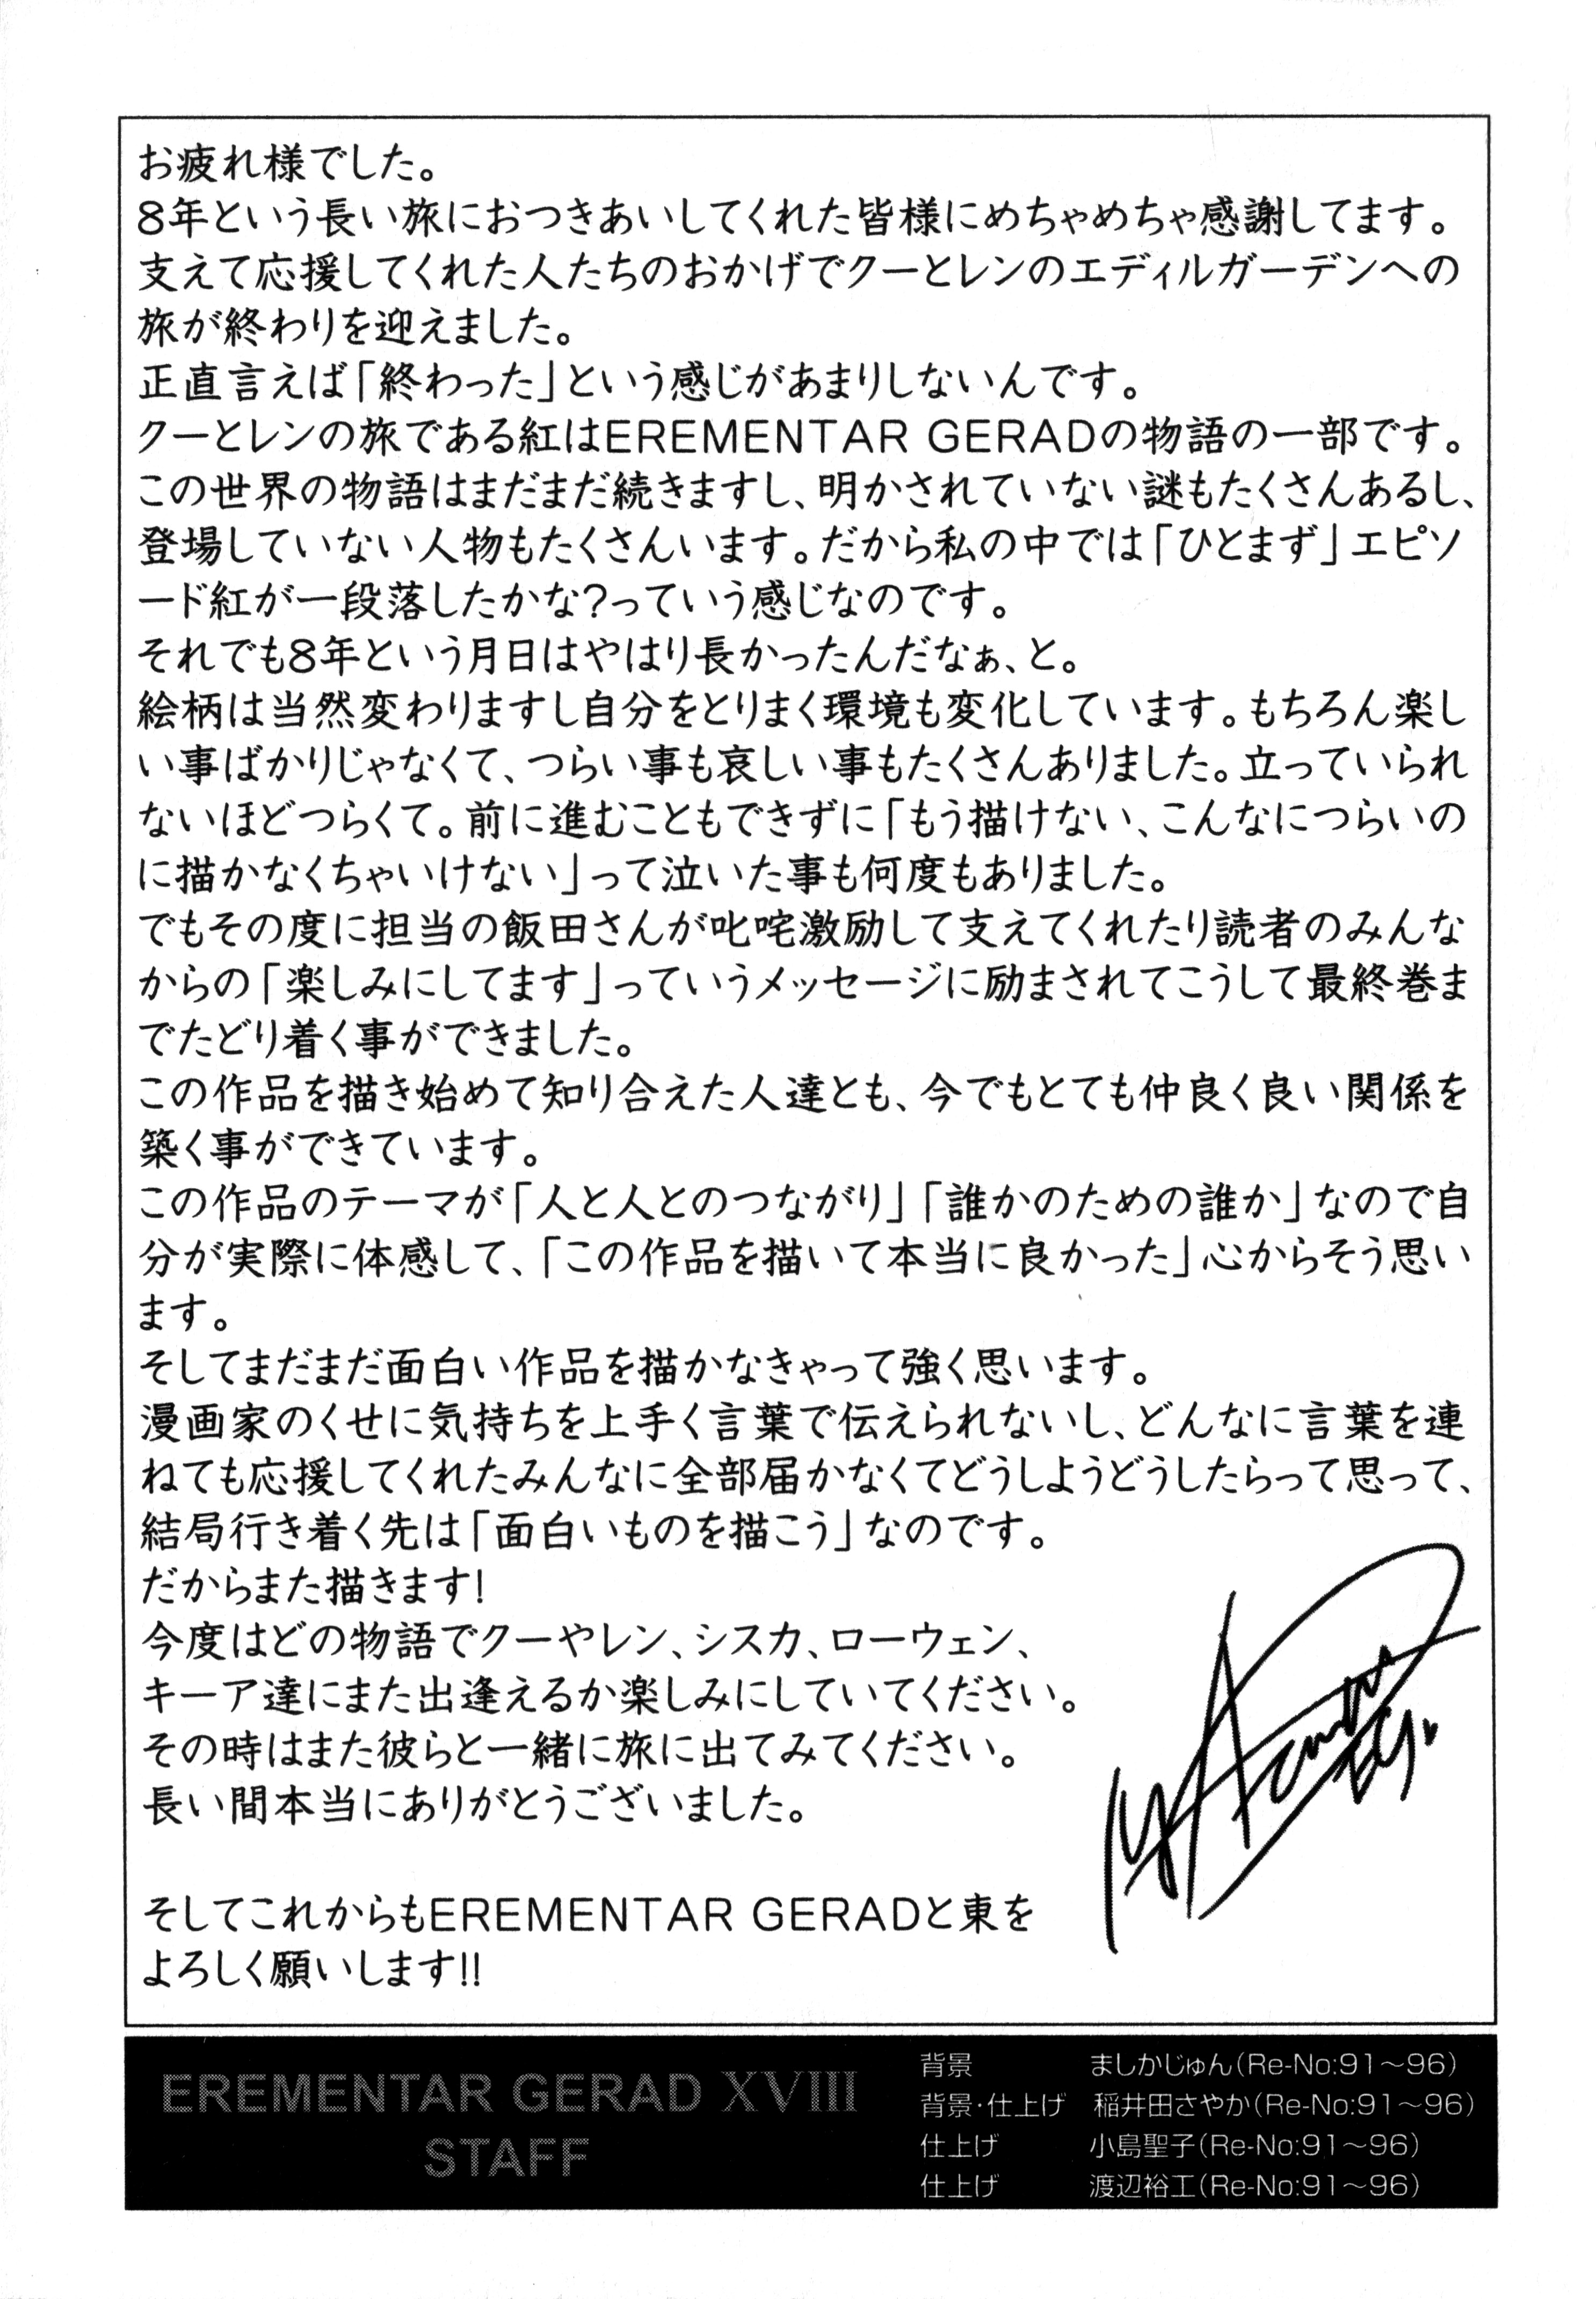 お疲れ様でした。
8年という長い旅におつきあいしてくれた皆様にめちゃめちゃ感謝してます。
支えて応援してくれた人たちのおかげでクーとレンのエディルガーデンへの
旅が終わりを迎えました。
正直言えば「終わった」という感じがあまりしないんです。
クーとレンの旅である紅はEREMENTAR GERADの物語の一部です。
この世界の物語はまだまだ続きますし、明かされていない謎もたくさんあるし、
登場していない人物もたくさんいます。だから私の中では「ひとまず」エピソ
ード紅が一段落したかな?っていう感じなのです。
それでも8年という月日はやはり長かったんだなぁ、と。
絵柄は当然変わりますし自分をとりまく環境も変化しています。もちろん楽し
い事ばかりじゃなくて、つらい事も哀しい事もたくさんありました。立っていられ
ないほどつらくて。前に進むこともできずに「もう描けない、こんなにつらいの
に描かなくちゃいけない」って泣いた事も何度もありました。
でもその度に担当の飯田さんが叱咤激励して支えてくれたり読者のみんな
からの「楽しみにしてます」っていうメッセージに励まされてこうして最終巻ま
でたどり着く事ができました。
この作品を描き始めて知り合えた人達とも、今でもとても仲良く良い関係を
築く事ができています。
この作品のテーマが「人と人とのつながり」「誰かのための誰か」なので自
分が実際に体感して、「この作品を描いて本当に良かった」心からそう思い
ます。
そしてまだまだ面白い作品を描かなきゃって強く思います。
漫画家のくせに気持ちを上手く言葉で伝えられないし、どんなに言葉を連
ねても応援してくれたみんなに全部届かなくてどうしようどうしたらって思って、
結局行き着く先は「面白いものを描こう」なのです。
だからまた描きます!
今度はどの物語でクーやレン、シスカ、ローウェン、
キーア達にまた出逢えるか楽しみにしていてください。
その時はまた彼らと一緒に旅に出てみてください。
長い間本当にありがとうございました。
そしてこれからもEREMENTAR GERADと東を
よろしく願いします!!
EREMENTAR GERAD XVIII
STAFF
背景 ましかじゅん(Re-No:91～96)
背景・仕上げ 稲井田さやか(Re-No:91～96)
仕上げ 小島聖子(Re-No:91～96)
仕上げ 渡辺裕工(Re-No:91～96)